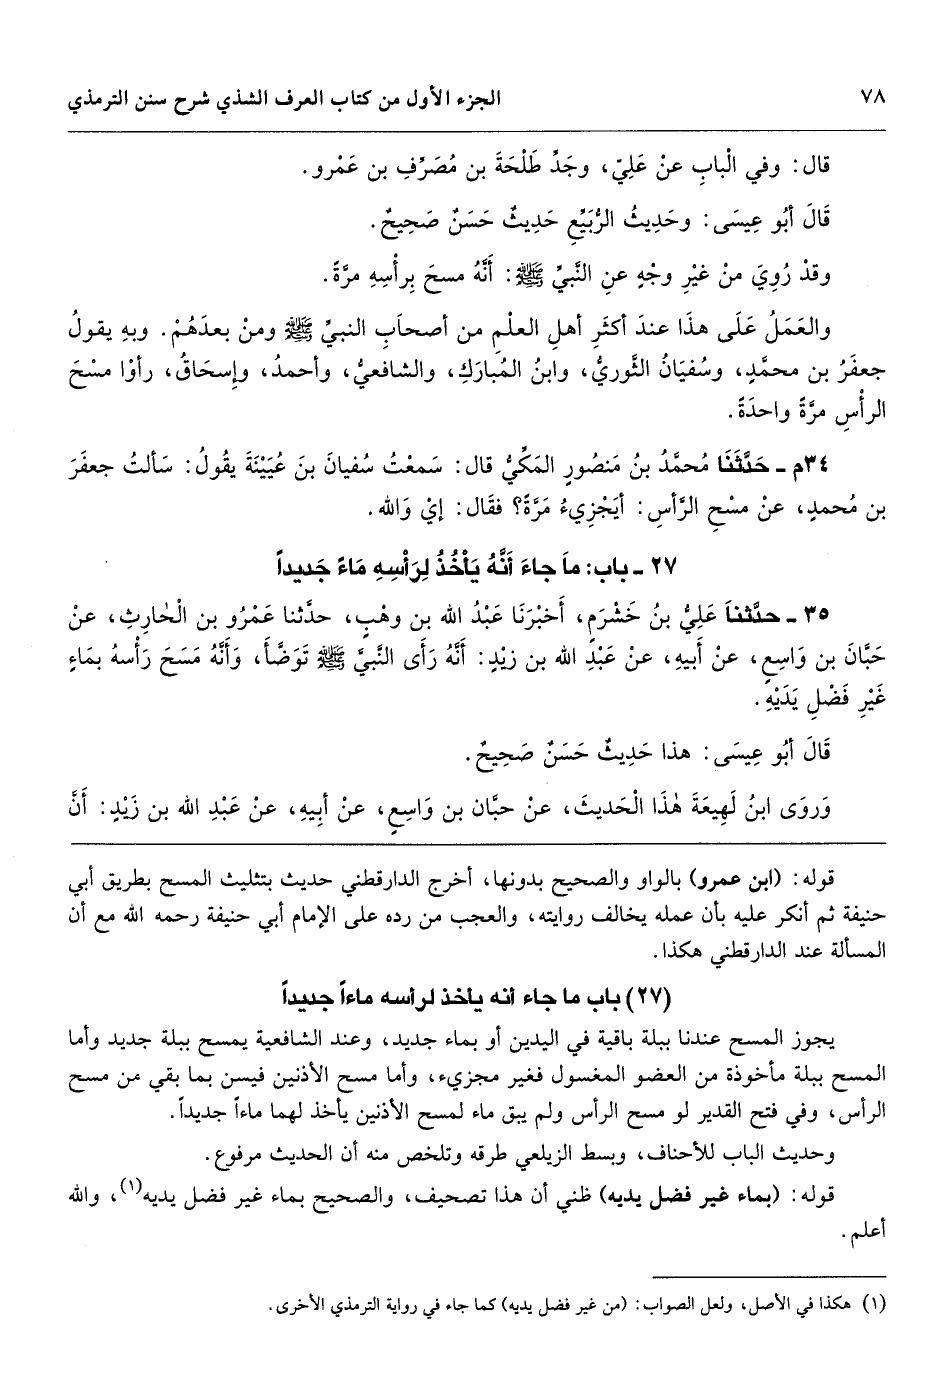 ٧٨ الجزء الأول من كتاب العرف الشذي شرح سنن الترمذي
قال: وفي الْبابِ عنْ عَلِيّ، وجَدِّ طَلْحَةَ بن مُصَرِّفِ بن عَمْرو.
قَالَ أبُو عِيسَى: وحَدِيثُ الرُّبَيِّعِ حَدِيثٌ حَسَنٌ صَحِيحٌ.
وقدْ رُوِيَ منْ غَيْرِ وجْهٍ عنِ النَّبيِّ ﷺ: أَنَّهُ مسحَ بِرأْسِهِ مرَّةً.
والعَمَلُ عَلَى هذَا عندَ أكثَرِ أهلِ العلْمِ من أصحاَبِ النبيِّ ﷺ ومنْ بعدَهُمْ. وبهِ يقولُ
جعفَرُ بن محمَّدٍ، وسُفيَانُ الثَّوريُّ، وابنُ المُبارَكِ، والشافعيُّ، وأحمدُ، وإسحَاقُ، رأوْا مسْحَ
الرأْسِ مرَّةً واحدَةً.
٣٤م ـ حَدَّثَنَا مُحمَّدُ بنُ مَنصُورٍ المَكِّيُّ قال: سَمعْتُ سُفيانَ بنَ عُيَيْنَةَ يقُولُ: سَألتُ جعفَرَ
بن مُحمدٍ، عنْ مسْحِ الرَّأسِ: أيَجْزِيءُ مَرَّةً؟ فقَال: إيْ وَالله.
٢٧ ـ باب: ماَ جاءَ أَنَّهُ يَأْخُذُ لِرَأْسِهِ مَاءً جَديداً
٣٥ ـ حدَّثناَ عَلِيُّ بنُ خَشْرَمٍ، أَخبْرَنَا عَبْدُ الله بن وهْبٍ، حدَّثنا عَمْرُو بن الْحَارِثِ، عنْ
حَبَّانَ بن وَاسِعٍ، عنْ أبيهِ، عنْ عَبْدِ الله بن زيْدٍ: أَنَّهُ رَأى النَّبيَّ ﷺ تَوَضَّأَ، وَأَنَّهُ مَسَحَ رَأْسهُ بمَاءٍ
غَيْرِ فَضْلِ يَدَيْهِ.
قَالَ أبُو عِيسَى: هذا حَدِيثٌ حَسَنٌ صَحِيحٌ.
وَرَوَى ابنُ لَهِيعَةَ هٰذَا الْحَديثَ، عنْ حبَّان بن وَاسِعٍ، عنْ أبِيهِ، عنْ عَبْدِ الله بن زَيْدٍ: أَنَّ
قوله: (ابن عمرو) بالواو والصحيح بدونها، أخرج الدارقطني حديث بتثليث المسح بطريق أبي
حنيفة ثم أنكر عليه بأن عمله يخالف روايته، والعجب من رده على الإمام أبي حنيفة رحمه الله مع أن
المسألة عند الدارقطني هكذا.
(٢٧) باب ما جاء أنه يأخذ لرأسه ماءاً جديداً
يجوز المسح عندنا ببلة باقية في اليدين أو بماء جديد، وعند الشافعية يمسح ببلة جديد وأما
المسح ببلة مأخوذة من العضو المغسول فغير مجزيء، وأما مسح الأذنين فيسن بما بقي من مسح
الرأس، وفي فتح القدير لو مسح الرأس ولم يبق ماء لمسح الأذنين يأخذ لهما ماءاً جديداً.
وحديث الباب للأحناف، وبسط الزيلعي طرقه وتلخص منه أن الحديث مرفوع.
قوله: (بماء غير فضل يديه) ظني أن هذا تصحيف، والصحيح بماء غير فضل يديه(١)، والله
أعلم.
(١) هكذا في الأصل، ولعل الصواب: (من غير فضل يديه) كما جاء في رواية الترمذي الأخرى.